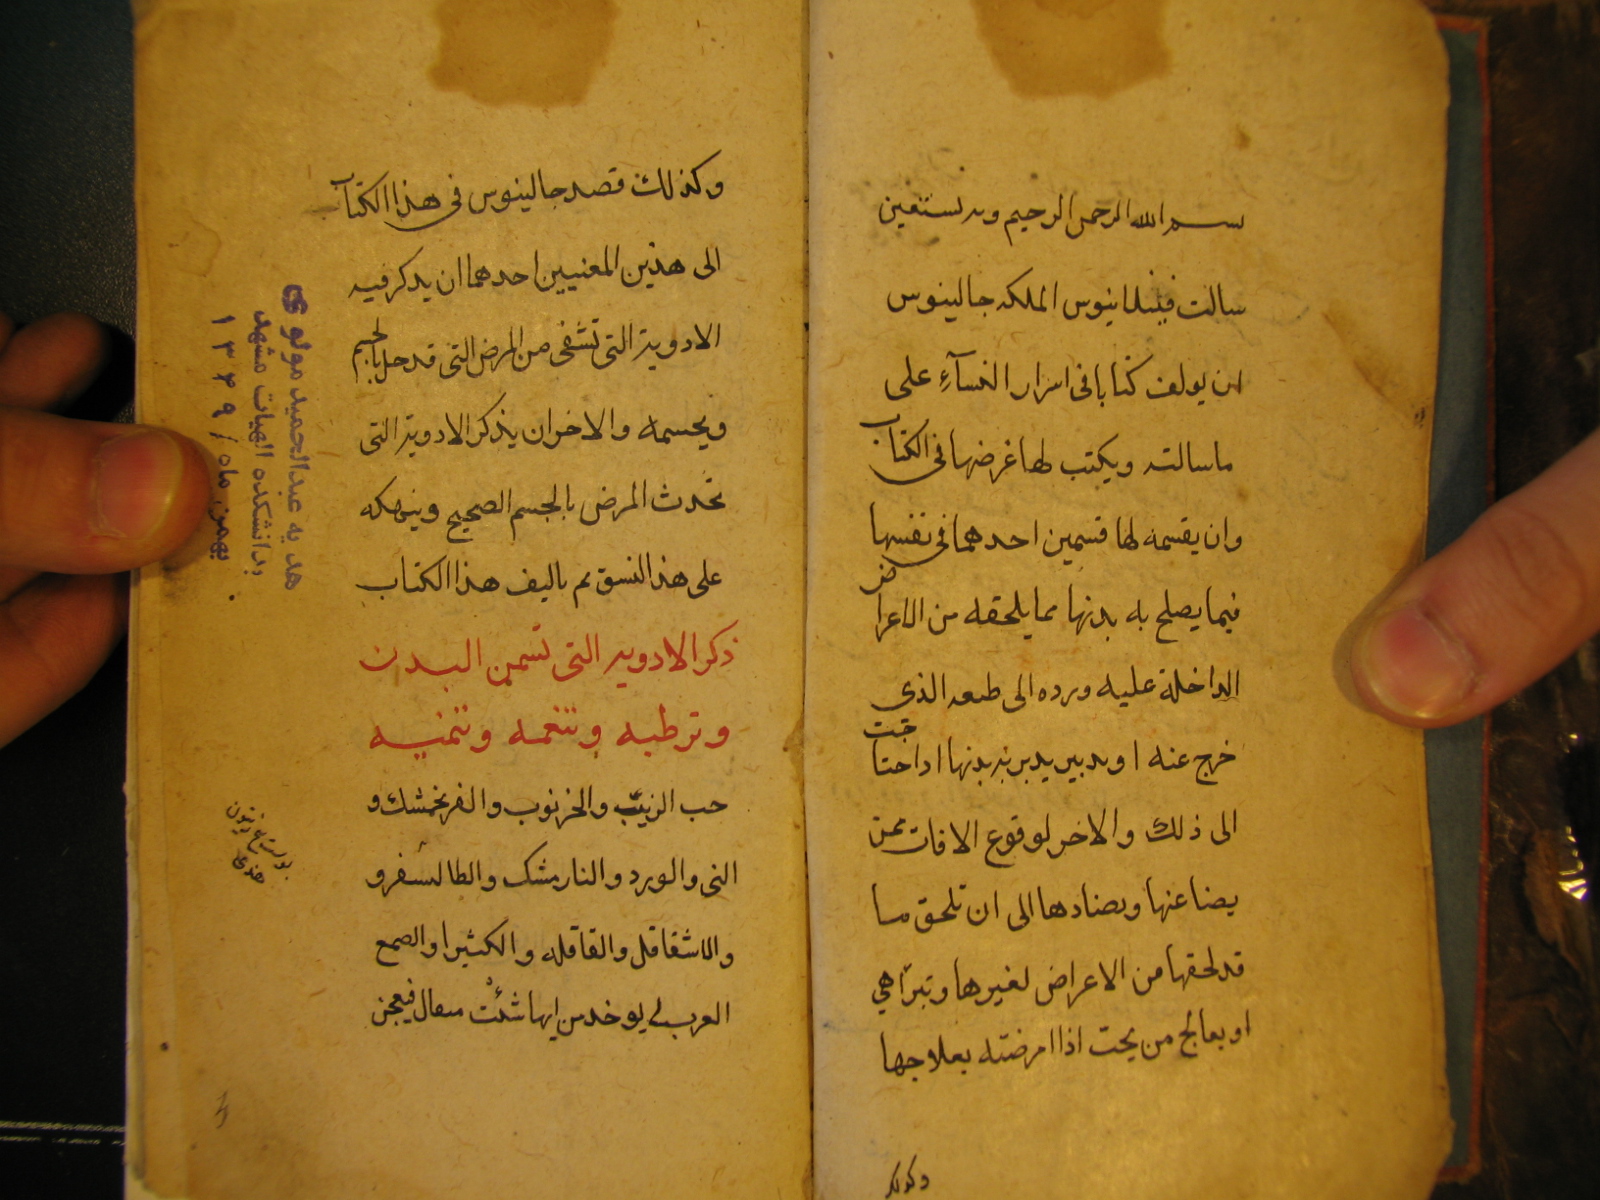 بسم الله الرحمن الرحيم وبه نستعين
سالت فيلانيوس الملكه جالينوس
ان يولف كتابا فى اسرار النساء على
ما سالته ويكتب لها غرضها فى الكتاب
وان يقسمه لها قسمين احدهما فى نفسها
فيما يصلح به بدنها مما يلحقه من الاعراض
الداخلة عليه ورده الى طبعه الذى
خرج عنه او تدبير يدبر به بدنها اذا احتاجت
الى ذلك والاخر لوقوع الافات بمن
عنها ويضادها الى ان تلحق ما
قد لحقها من الاعراض لغيرها وتبرا هى
او يعالج من يحب اذا امرضته بعلاجها
وكذلك
وكذلك قصد جالينوس فى هذا الكتاب
الى هذين المعنيين احدهما ان يذكر فيه
الادوية التى تشفى من المرض التى قد حل بالجسم
ويحسمه والاخر ان يذكر الادوية التى
تحدث المرض بالجسم الصحيح وينهكه
على هذا النسق تم تاليف هذا الكتاب
ذكر الادويه التى تسمن البدن
وترطبه وتنعمه وتنميه
حب الزبيب والخرنوب والفرنجمشك و
النى والورد والنارمشك والطالسفر و
والاشقاقل والقاقله والكثيرا والصمغ
العربى يوخذ من ايها شئت مثقال فيعجن
هدیه عبدالحمید مولوی
بدانشکده الهیات مشهد
بهمن ماه / ۱۳۳۹